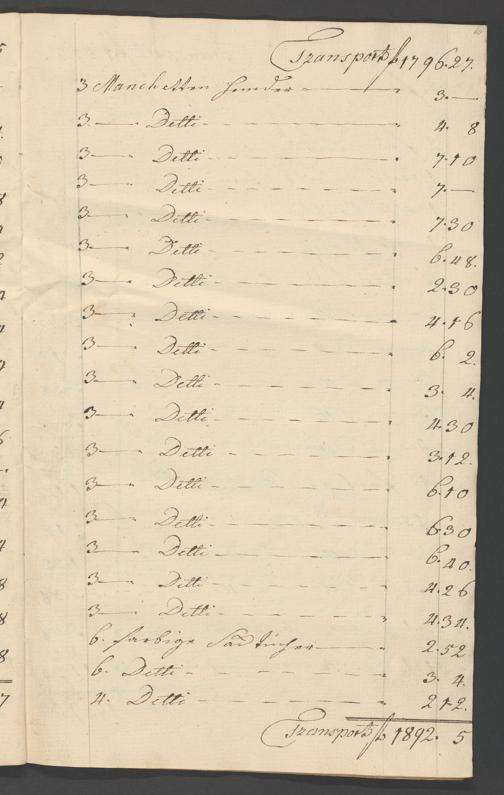 Transport f 1796.27.
3 Manchetten hemder — 3.—
3.— Detti — 4. 8
3— Detti — 7.10
3— Detti — 7.—
3— Detti — 7.30
3— Detti — 6.48.
3— Detti — 2.30
3— Detti — 4.16
3— Detti — 6. 2.
3— Detti — 3. 4.
3— Detti — 4.30
3— Detti — 3.12.
3— Detti — 6.10
3— Detti — 6.30
3— Detti — 6.40.
3— Detti — 4.26
3— Detti — 4.34.
6. farbige Sacktücher — 2.52
6. Detti — 3. 4.
4. Detti — 2.12.
Transport f 1892. 5